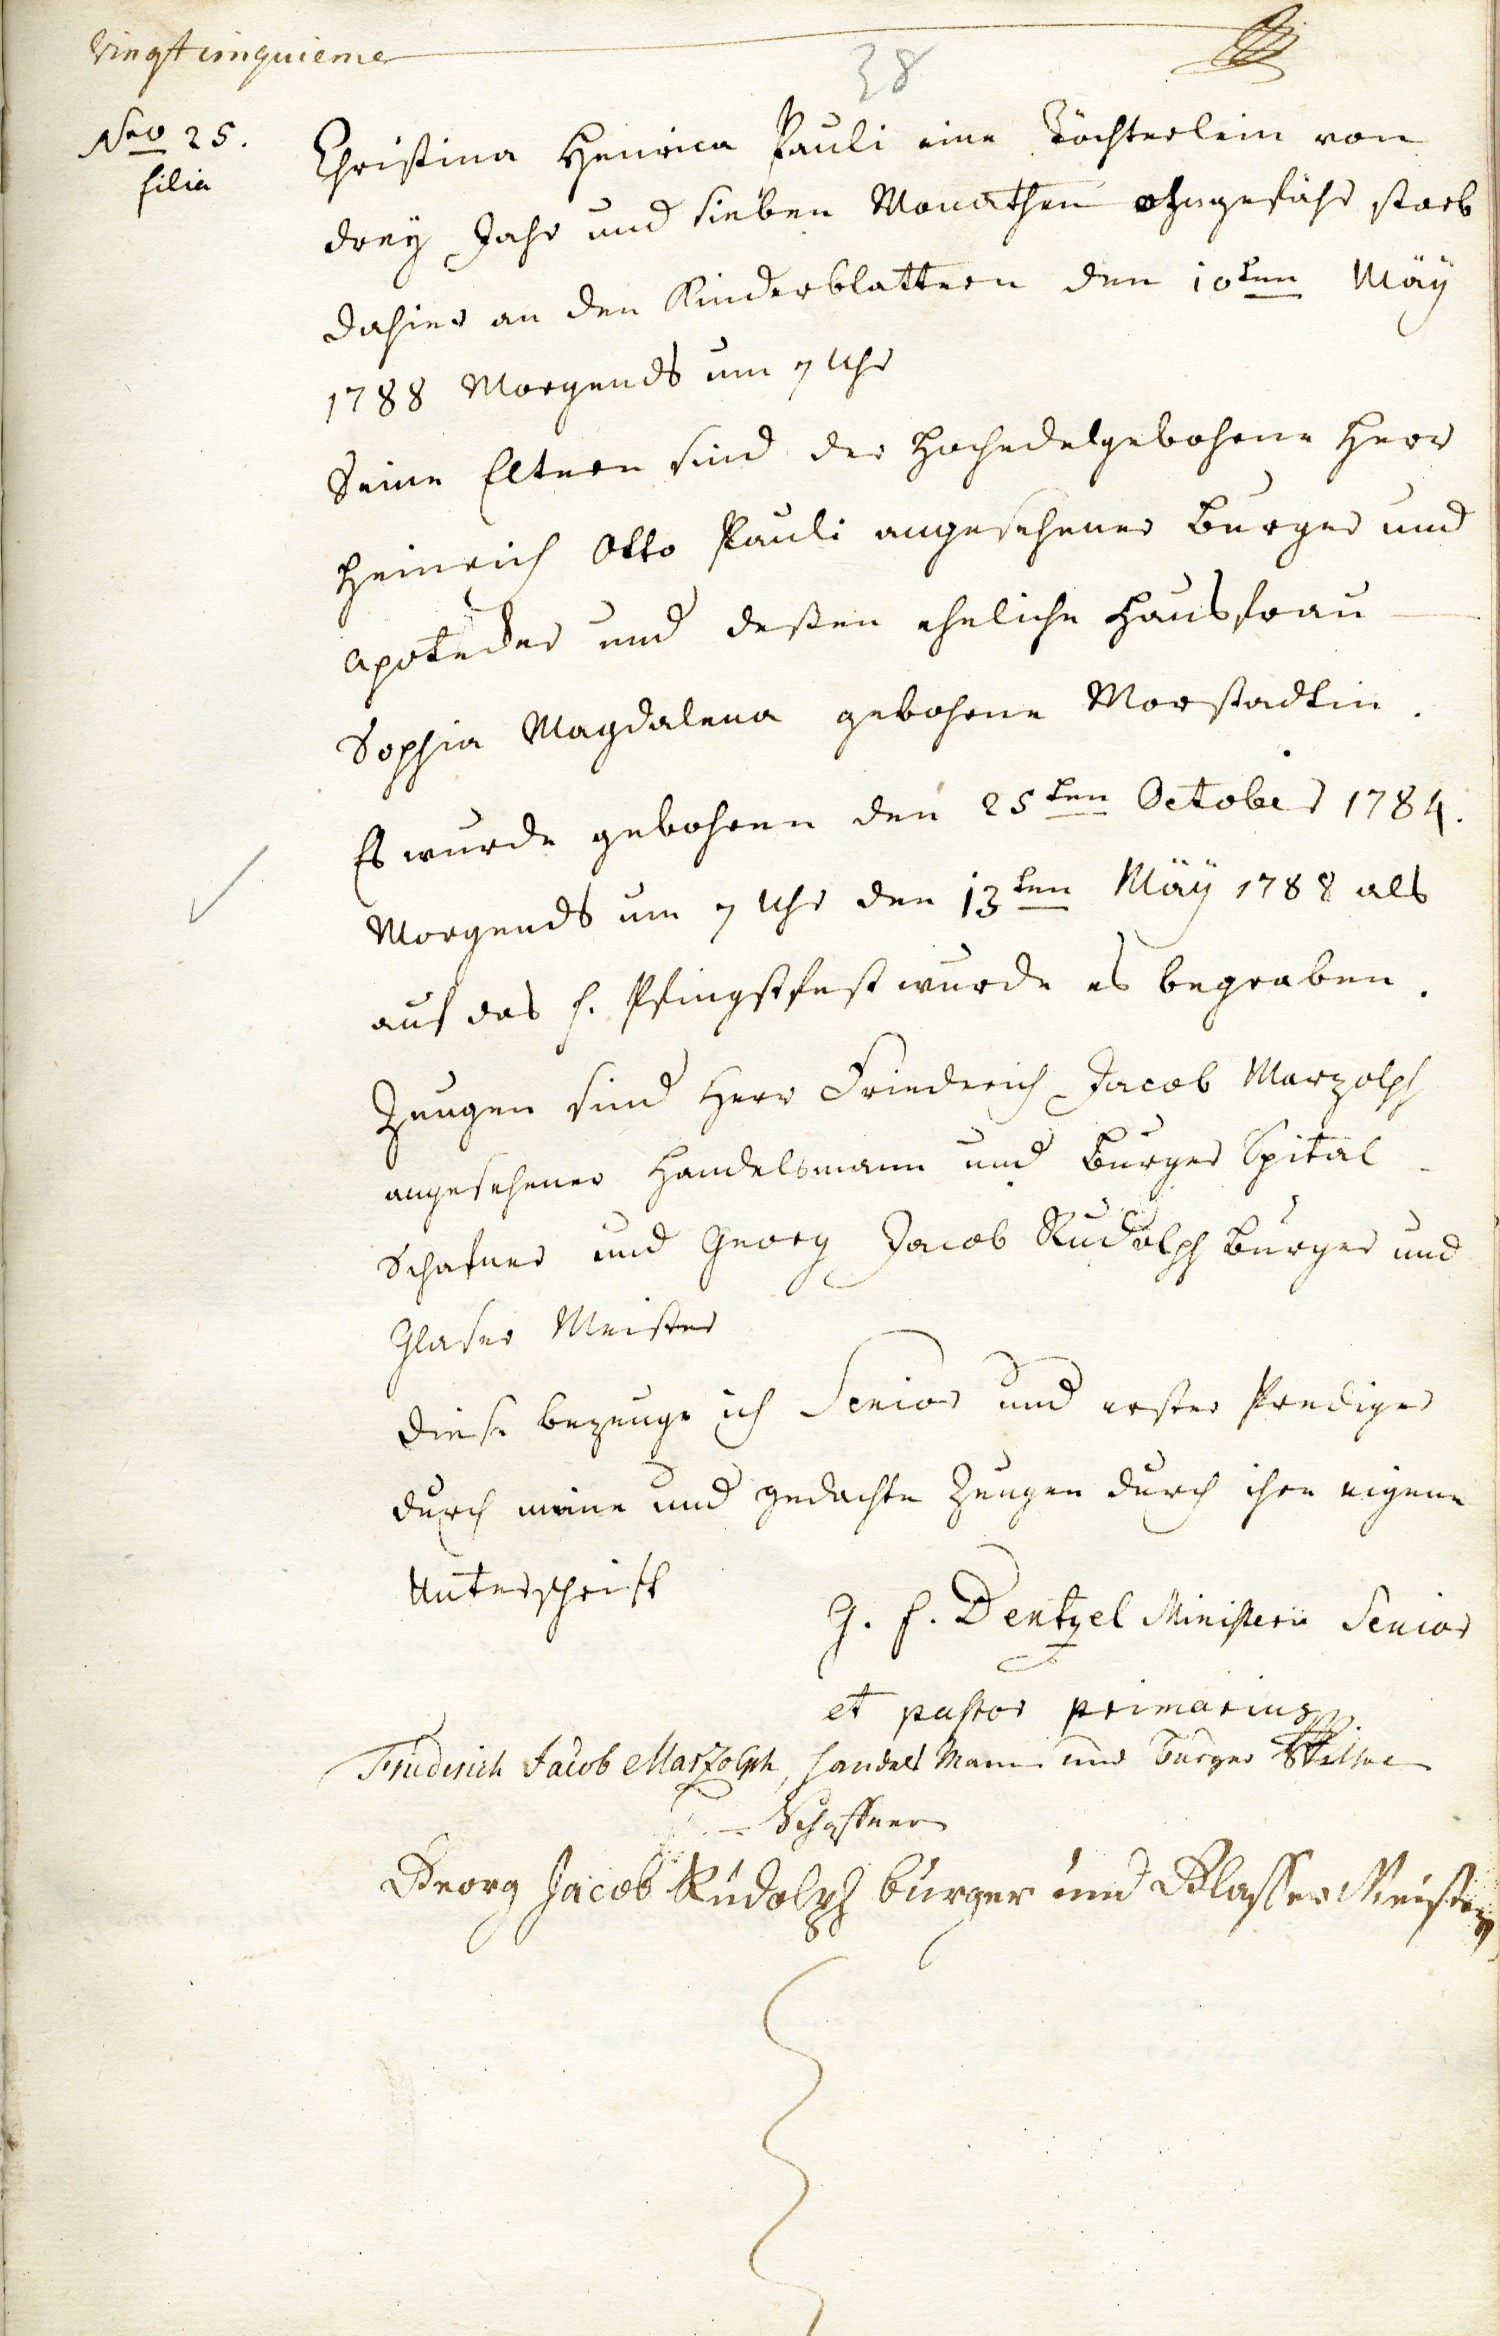 Vingt cinquieme
38
Nro 25.
filia
Christina Henrica Pauli eine Töchterlein von
drey Jahr und sieben Monathen ohngefähr starb
dahier an den Kinderblattern den 10ten Mäy
1788 Morgends um 7 Uhr
Seine Eltern sind der Hochedelgebohrne Herr
Heinrich Otto Pauli angesehener Burger und
Apoteder und deßen eheliche Hausfrau
Sophia Magdalena gebohrne Morstadtin.
Es wurde gebohren den 25ten October 1784.
Morgends um 7 Uhr den 13ten Mäy 1788 als
auf das h. Pfingstfest wurde es begraben.
Zeugen sind Herr Friedrich Jacob Marzolph
angesehener Handelsmann und Burger Spital
Schafner und Georg Jacob Rudolph Burger und
Glaser Meister
Diese bezeuge ich Senior und erster Prediger
durch meine und gedachte Zeugen durch ihre eigene
Unterschrift
G. F. Dentzel Ministerii Senior
et pastor primarius
Friderich Jacob Marzolph, Handels Mann und Burger
Schaffner
Georg Jacob Rudolph burger und Glasser Meister